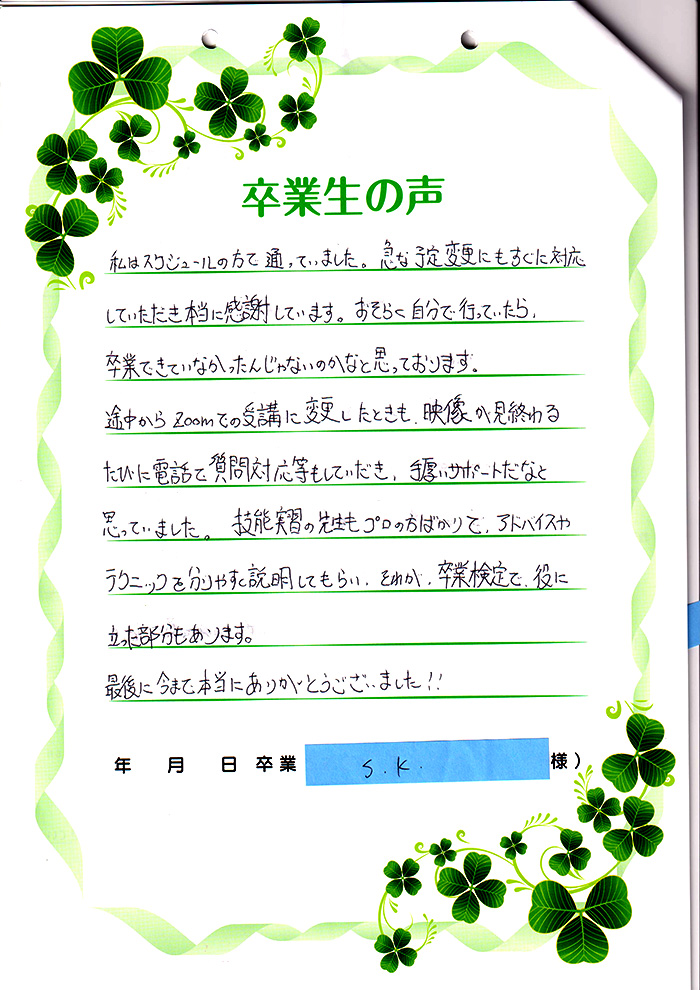 卒業生の声
私はスケジュールの方で通っていました。急な予定変更にもすぐに対応
していただき本当に感謝しています。おそらく自分で行っていたら、
卒業できていなかったんじゃないのかなと思っております。
途中からZoomでの受講に変更したときも、映像が見終わる
たびに電話で質問対応等もしていだき、手厚いサポートだなと
思っていました。技能実習の先生もプロの方ばかりで、アドバイスや
テクニックを分りやすく説明してもらい、それが、卒業検定で、役に
立った部分もあります。
最後に今まで本当にありがとうございました!!
年 月 日 卒業 S.K. 様)